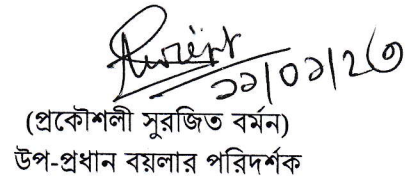 ১১/০১/২৩
(প্রকৌশলী সুরজিত বর্মন)
উপ-প্রধান বয়লার পরিদর্শক